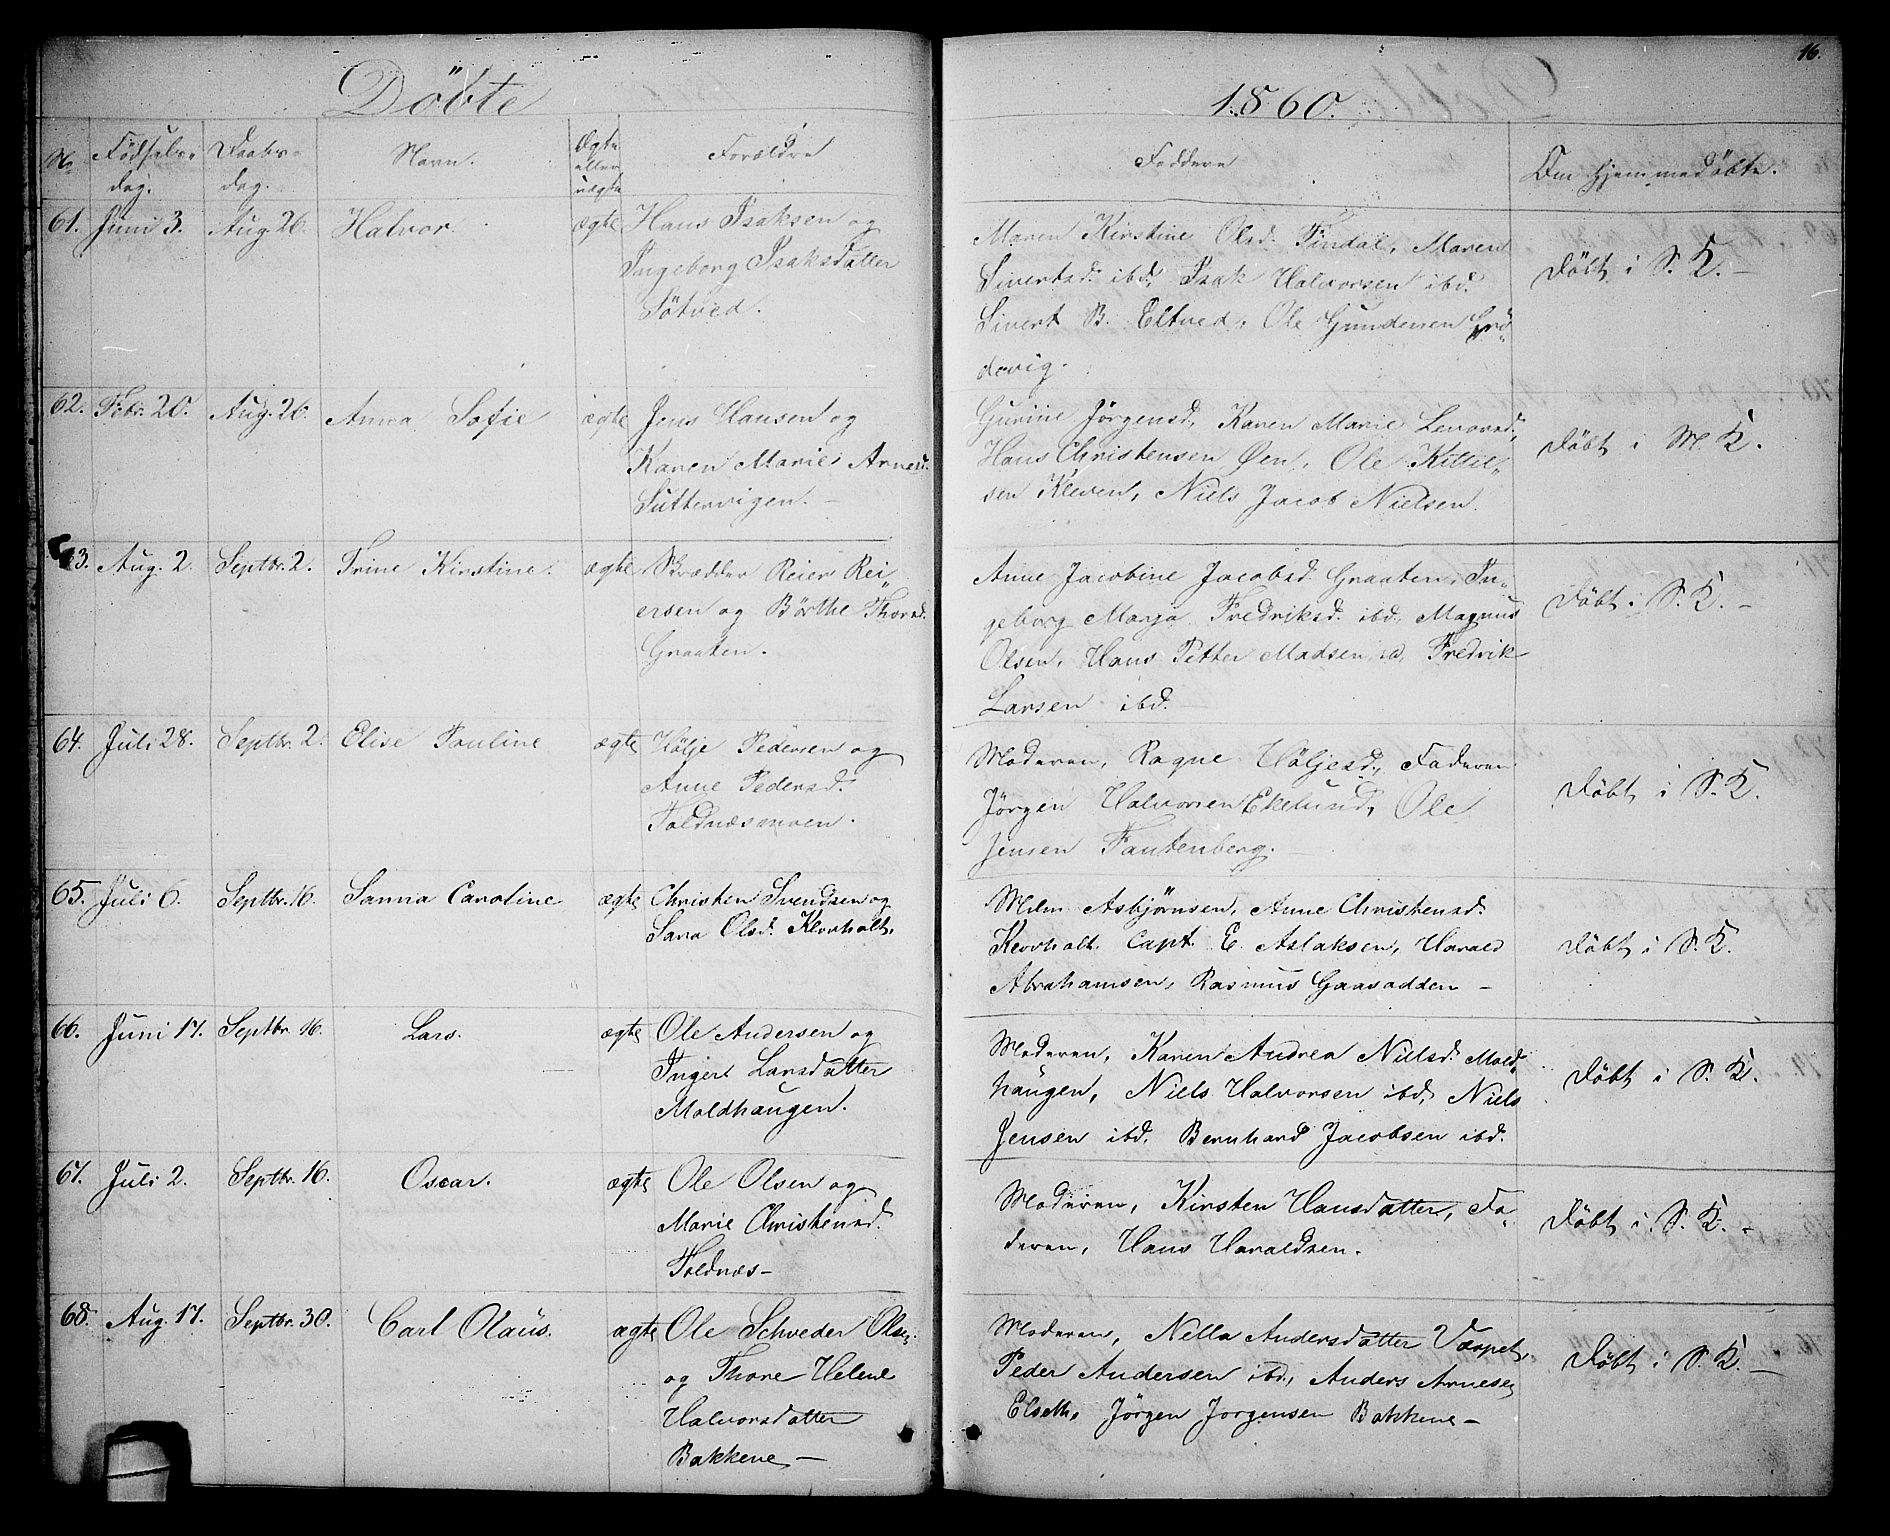 16.
Döbte
1860.
No
Födsels-
dag.
Daabs-
dag.
Navn.
Ægte
eller
uægte
Forældre
Faddere
Om Hjemmedöbte.
61. Juni 3. Aug. 26. Halvor. ægte
Hans Isaksen og
Ingeborg Isaksdatter
Søtved.
Maren Kirstine Olsd. Findal, Maren
Sivertsd. ibd, Isak Halvorsen ibd.
Sivert B. Eltved, Ole Gundersen Grö-
devig.
Döbt i S. K. -
62. Febr. 20. Aug. 26. Anna Sofie ægte
Jens Hansen og
Karen Marie Arnesd.
Suttervigen. -
Gurine Jørgensd, Karen Marie
Hans Christensen Øen, Ole Kittil-
sen Kleven, Niels Jacob Nielsen.
Döbt i M. K.
63. Aug. 2. Septbr. 2. Trine Kirstine. ægte
Skrædder Reier Rei-
ersen og Börthe Thorsd.
Graaten.
Anne Jacobine Jacobsd. Graaten, In-
geborg Marja Fredriksd. ibd, Magnus
Olsen, Hans Petter Madsen, Fredrik
Larsen ibd.
Döbt i S. K. -
64. Juli 28. Septbr. 2. Elise Pauline ægte
Hölje Pedersen og
Anne Pedersd.
Foldnæsmoen.
Moderen, Ragne Höljesd., Faderen
Jørgen Halvorsen Ekelund, Ole
Jensen Fautenberg.
Döbt i S. K.
65. Juli 6. Septbr. 16. Sanna Caroline ægte
Christen Svendsen og
Sara Olsd. Klovholt.
Asbjørnsen, Anne Christensd.
Klovholt. Capt. E. Aslaksen, Harald
Abrahamsen, Rasmus Gaasodden -
Döbt i S. K.
66. Juni 17. Septbr. 16. Lars. ægte
Ole Andersen og
Inger Larsdatter
Moldhaugen.
Moderen, Karen Andrea Nielsd. Mold-
haugen, Niels Halvorsen ibd, Niels
Jensen ibd. Bernhard Jacobsen ibd.
Döbt i S. K.
67. Juli 2. Septbr. 16. Oscar. ægte
Ole Olsen og
Marie Christensd.
Foldnæs -
Moderen, Kirsten Hansdatter, Fa-
deren, Hans Haraldsen.
Döbt i S. K. -
68. Aug. 17. Septbr. 30. Carl Olaüs. ægte
Ole Schveder Olsen
og Thore Helene
Halvorsdatter
Bakkene -
Moderen, Nella Andersdatter Værpet,
Peder Andersen ibd., Anders Arnesen
Elseth, Jørgen Jorgensen Bakkene -
Döbt i S. K. -